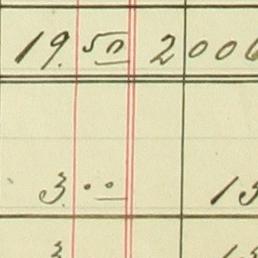 19.50 2006
3.00 13
3 13